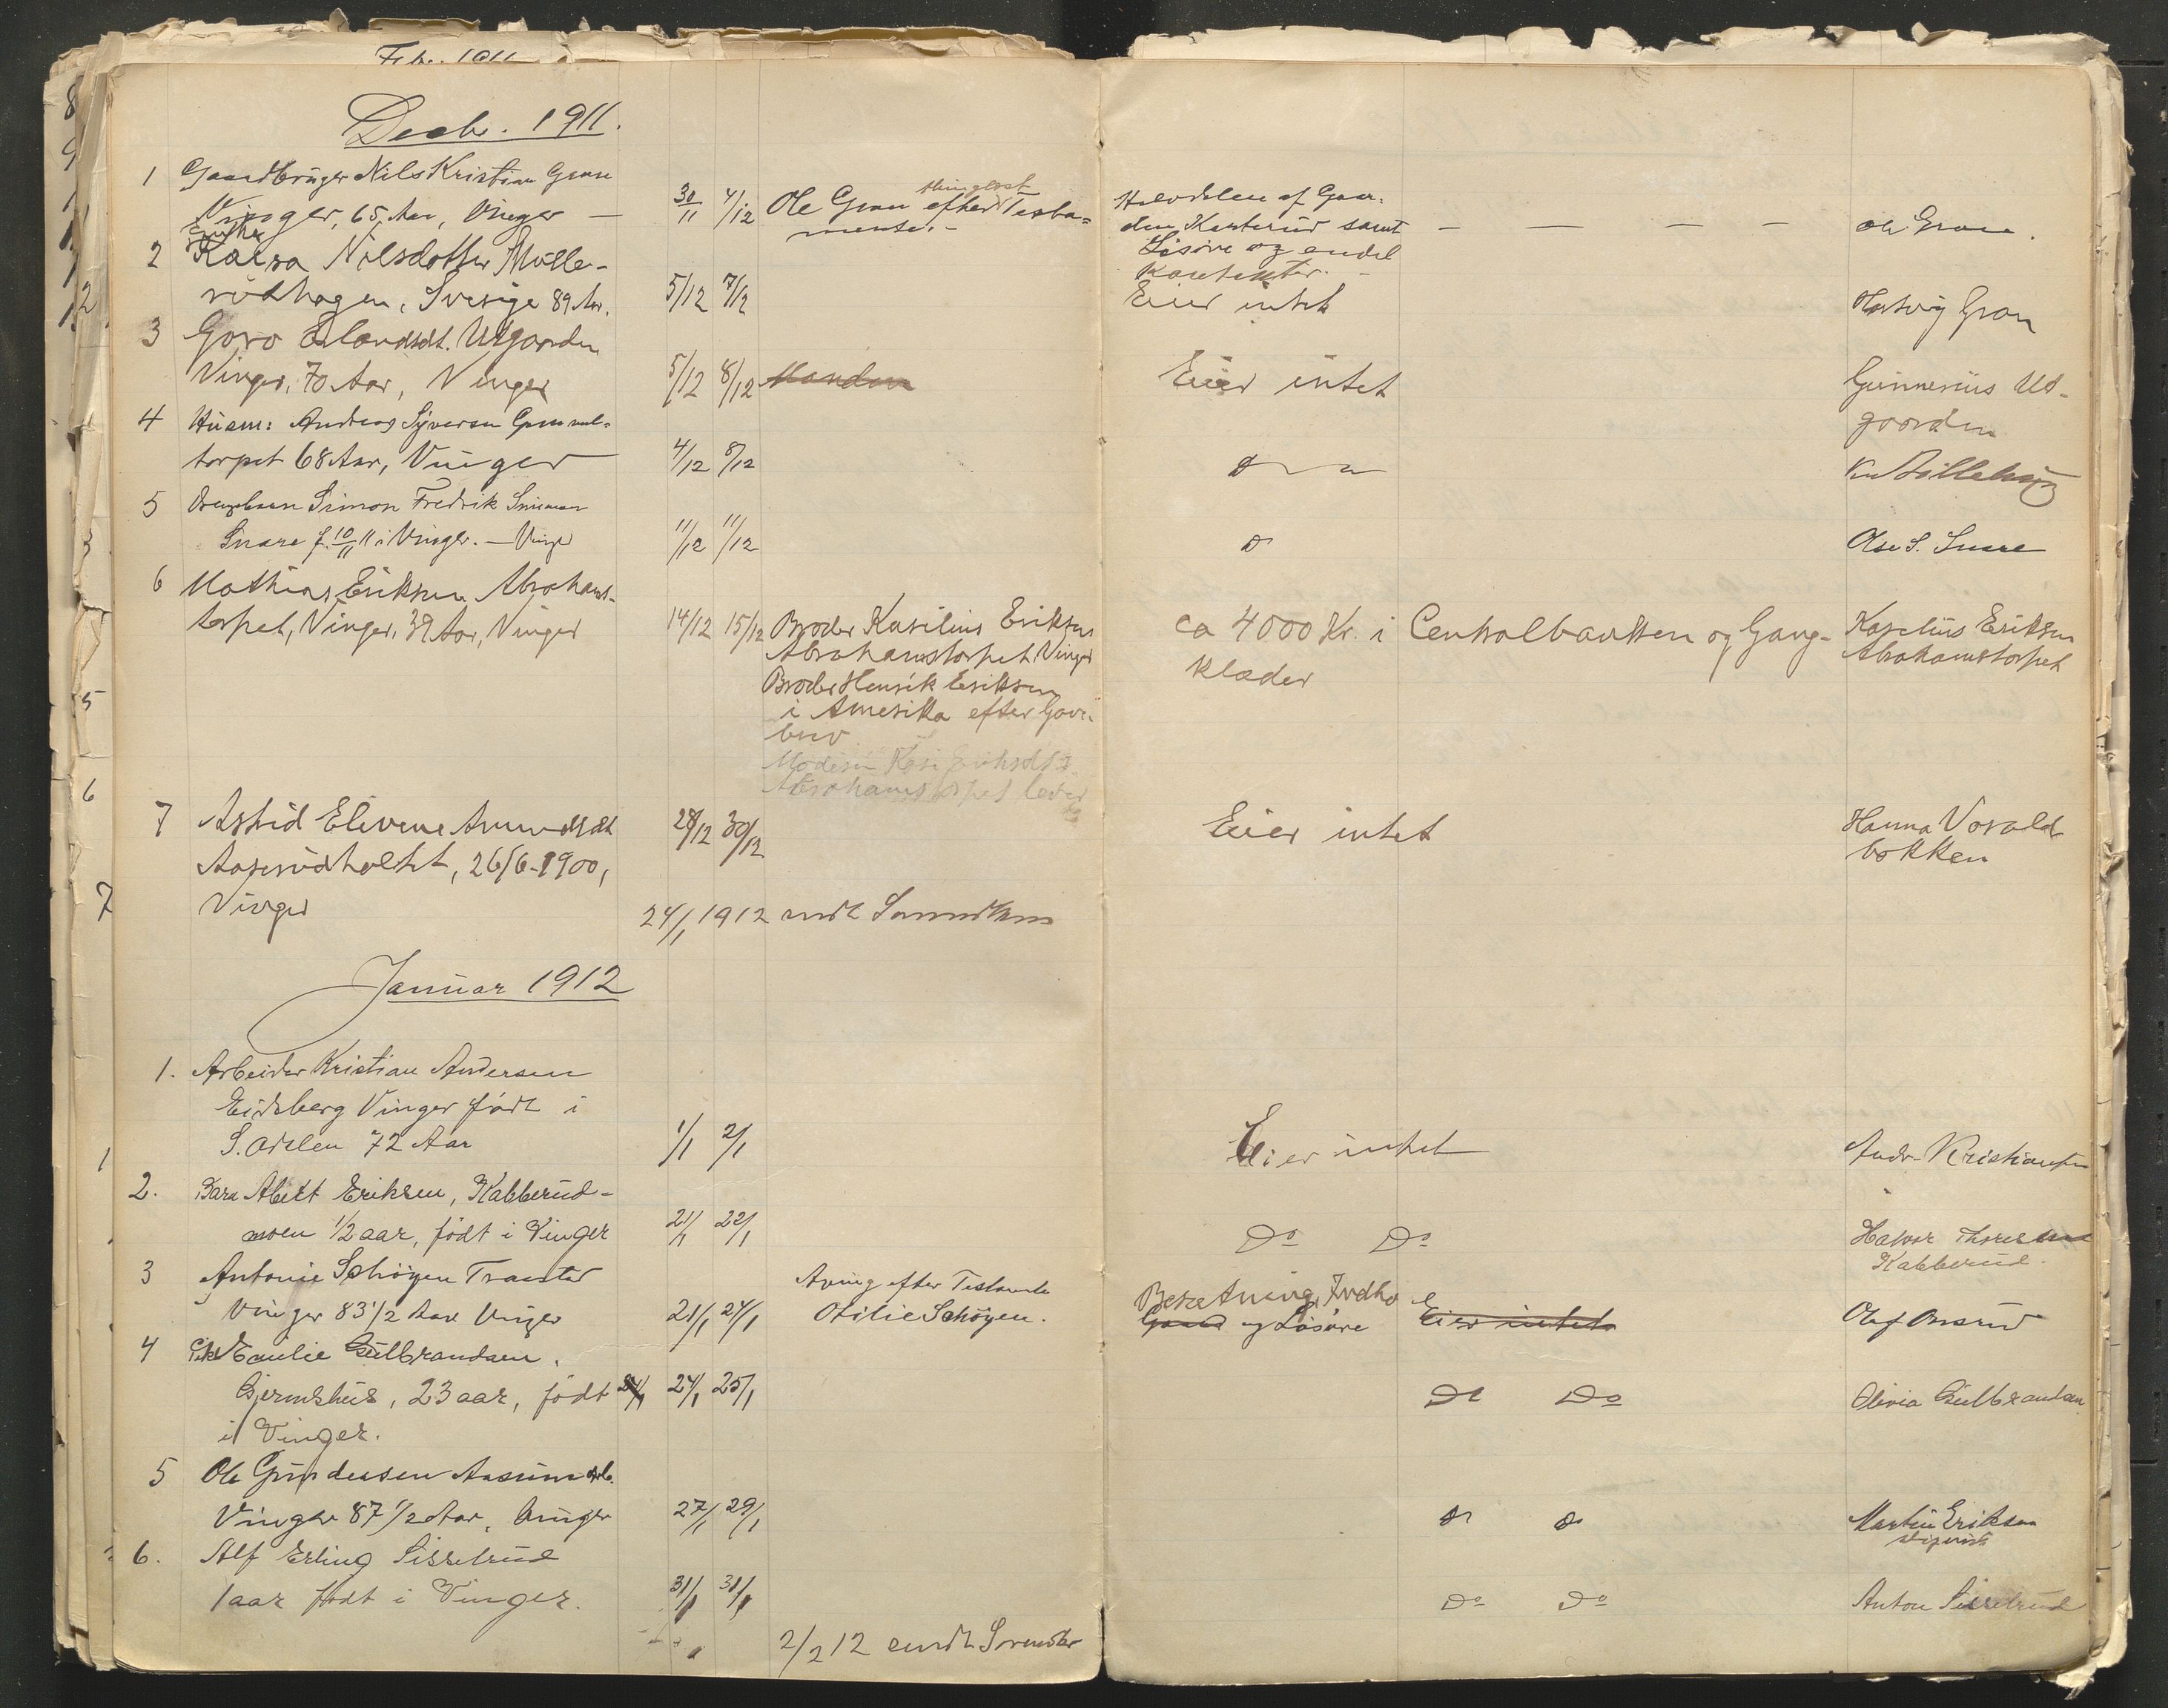 Feb. 1911
Decbr. 1911.
1 Gaardbruger Nils Kristian Gran
Vinger, 65 Aar, Vinger — 30/11 4/12 Ole Gran efter Testa-
mente. -
Halvdelen af Gaar-
den samt
Løsøre og endel
Kontanter. -
— — — —
Ole Gran.
2 Enke
Karen Nilsdotter Mølle-
rudhagen, Sverige 89 Aar. 5/12 7/12 Eier intet Hartvig Gran
3 Goro Erlandsdt. Utgaarden
Vinger, 70 Aar, Vinger 5/12 8/12 Manden Eier intet Gunnerius Ut-
gaarden
4 Husm: Andreas Syversen Gammel-
torpet 68 Aar, Vinger 4/12 8/12 Do
5 Simon Fredrik Simensen
Snare f. 10/11 11 i Vinger. — Vinger 11/12 11/12 Do Ole S. Snare
6 Mathias Eriksen Abrahams-
torpet, Vinger, 39 Aar, Vinger 14/12 15/12 Broder Kasilius Eriksen
Abrahamstorpet, Vinger
Broder Henrik Eriksen
i Amerika efter Gave-
brev
Moderen Kari Eriksdt.
Abrahamstorpet lever
ca 4000 Kr. i Centralbanken og Gang-
klæder
Kaselius Eriksen
Abrahamstorpet
7 Astrid Elevine Amundsdt
Aaserudholtet, 26/6-1900, 28/12 30/12 Eier intet Hanna Vorald
bakken
Vinger
24/1 1912 sendt Sorenskr
Januar 1912
1. Arbeider Kristian Andersen
Eidsberg Vinger født i
S. Odalen 72 Aar 1/1 2/1 Eier intet Andr. Kristiansen
2. Barn Albert Eriksen, Kabberud-
moen 1/2 aar, født i Vinger 21/1 22/1 Do Do Halvor Thoresen
Kabberud.
3 Antonie Schøyen Tranter
Vinger 83 1/2 Aar Vinger 21/1 24/1 Arving efter Testamente
Otilie Schøyen.
Besætning, Indbo
Gaard og Løsøre Eier intet Olaf
4 Pike Emilie Gulbrandsen.
Gjermshus, 23 aar, født 24/1 24/1 25/1 Do Do Olivia Gulbrandsen
i Vinger.
5 Ole Gundersen Aasum
Vinger 87 1/2 Aar, Vinger 27/1 29/1 Do Do Martin Eriksen
6. Alf Erling Sisselrud
1 aar født i Vinger. 31/1 31/1 Do Do Anton Sisselrud
2/2 12 sendt Sorenskr